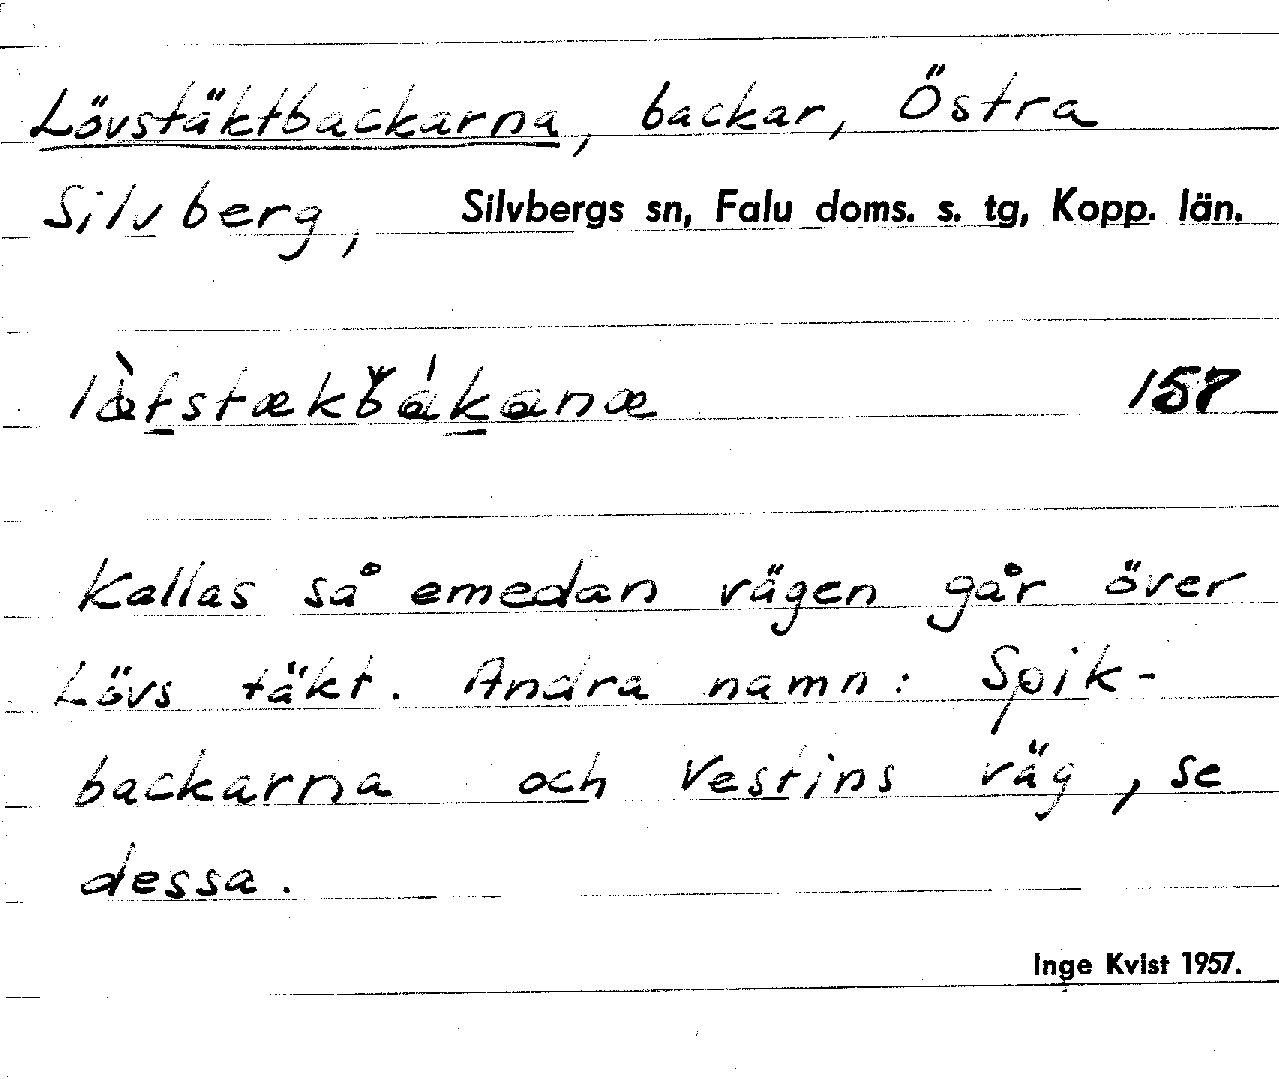 Lövstäktbackarna, backar, Östra
Silvberg, Silvbergs sn, Falu doms. s. tg, Kopp. län.
157
Kallas så emedan vägen går över
Lövs täkt. Andra namn: Spik-
backarna och Vestins väg, se
dessa.
Inge Kvist 1957.